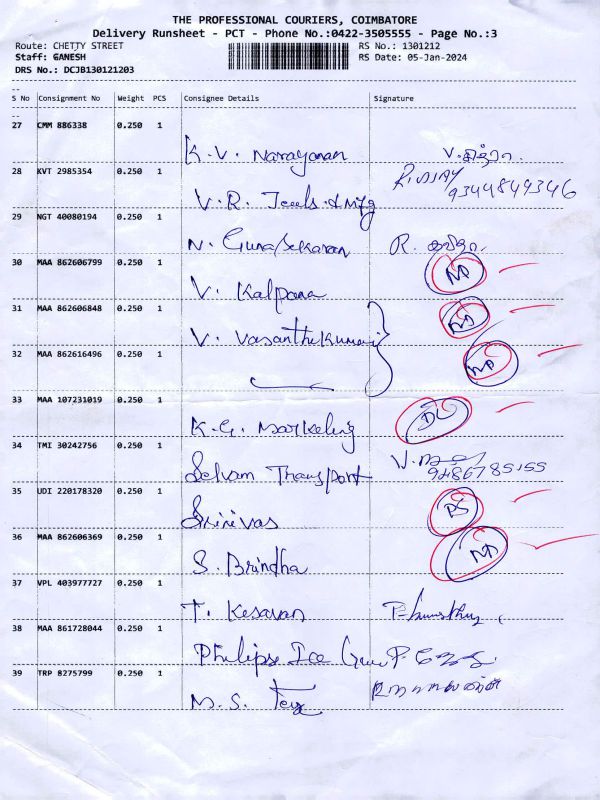 THE PROFESSIONAL COURIERS, COIMBATORE
Delivery Runsheet - PCT - Phone No.:0422-3505555 - Page No.:3
Route: CHETTY STREET RS No.: 1301212
Staff: GANESH RS Date: 05-Jan-2024
DRS No.: DCJB130121203
S No Consignment No Weight PCS Consignee Details Signature
27 CMM 886338 0.250 1
K.V. Narayanan V. சித்ரா
28 KVT 2985354 0.250 1
R. VIJAY
V.R. Tools & mfg 9344849346
29 NGT 40080194 0.250 1
N. Gunasekaran R.
30 MAA 862606799 0.250 1
V. Kalpana ND
31 MAA 862606848 0.250 1
V. Vasanthakumari ND
32 MAA 862616496 0.250 1
ND
33 MAA 107231019 0.250 1
K.G. Marketing DL
34 TMI 30242756 0.250 1
Selvam Transport V.
35 UDI 220178320 0.250 1
Srinivas DS
36 MAA 862606369 0.250 1
S. Brindha ND
37 VPL 403977727 0.250 1
T. Kesavan
38 MAA 861728044 0.250 1
Philips Ice P.
39 TRP 8275799 0.250 1
M.S. Tex